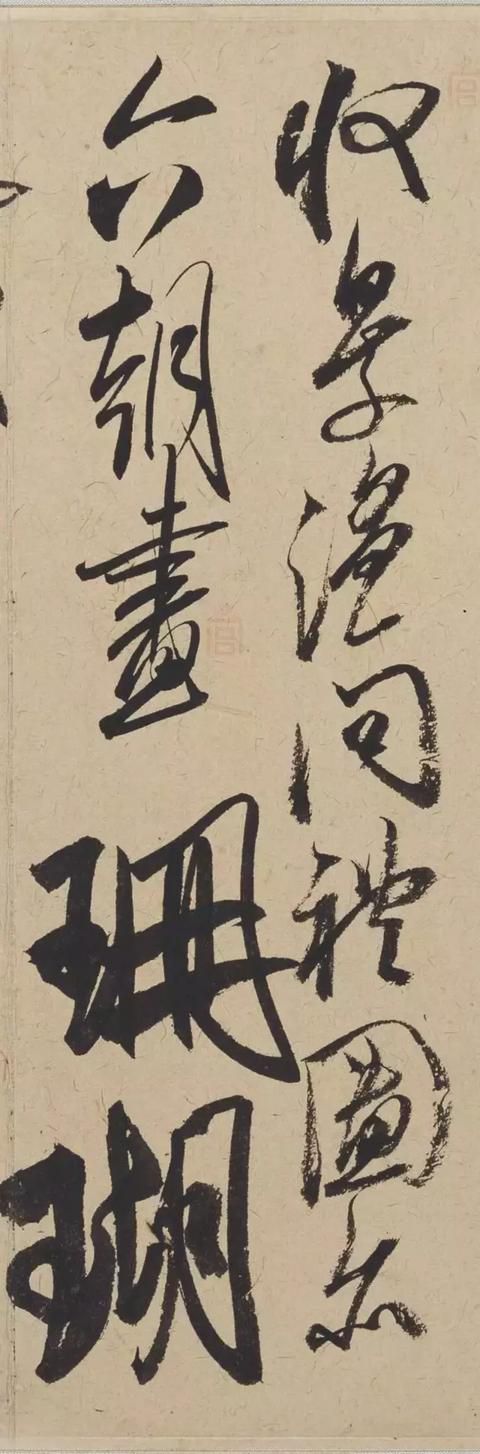 收景溫問禮圖亦
六朝畫珊瑚